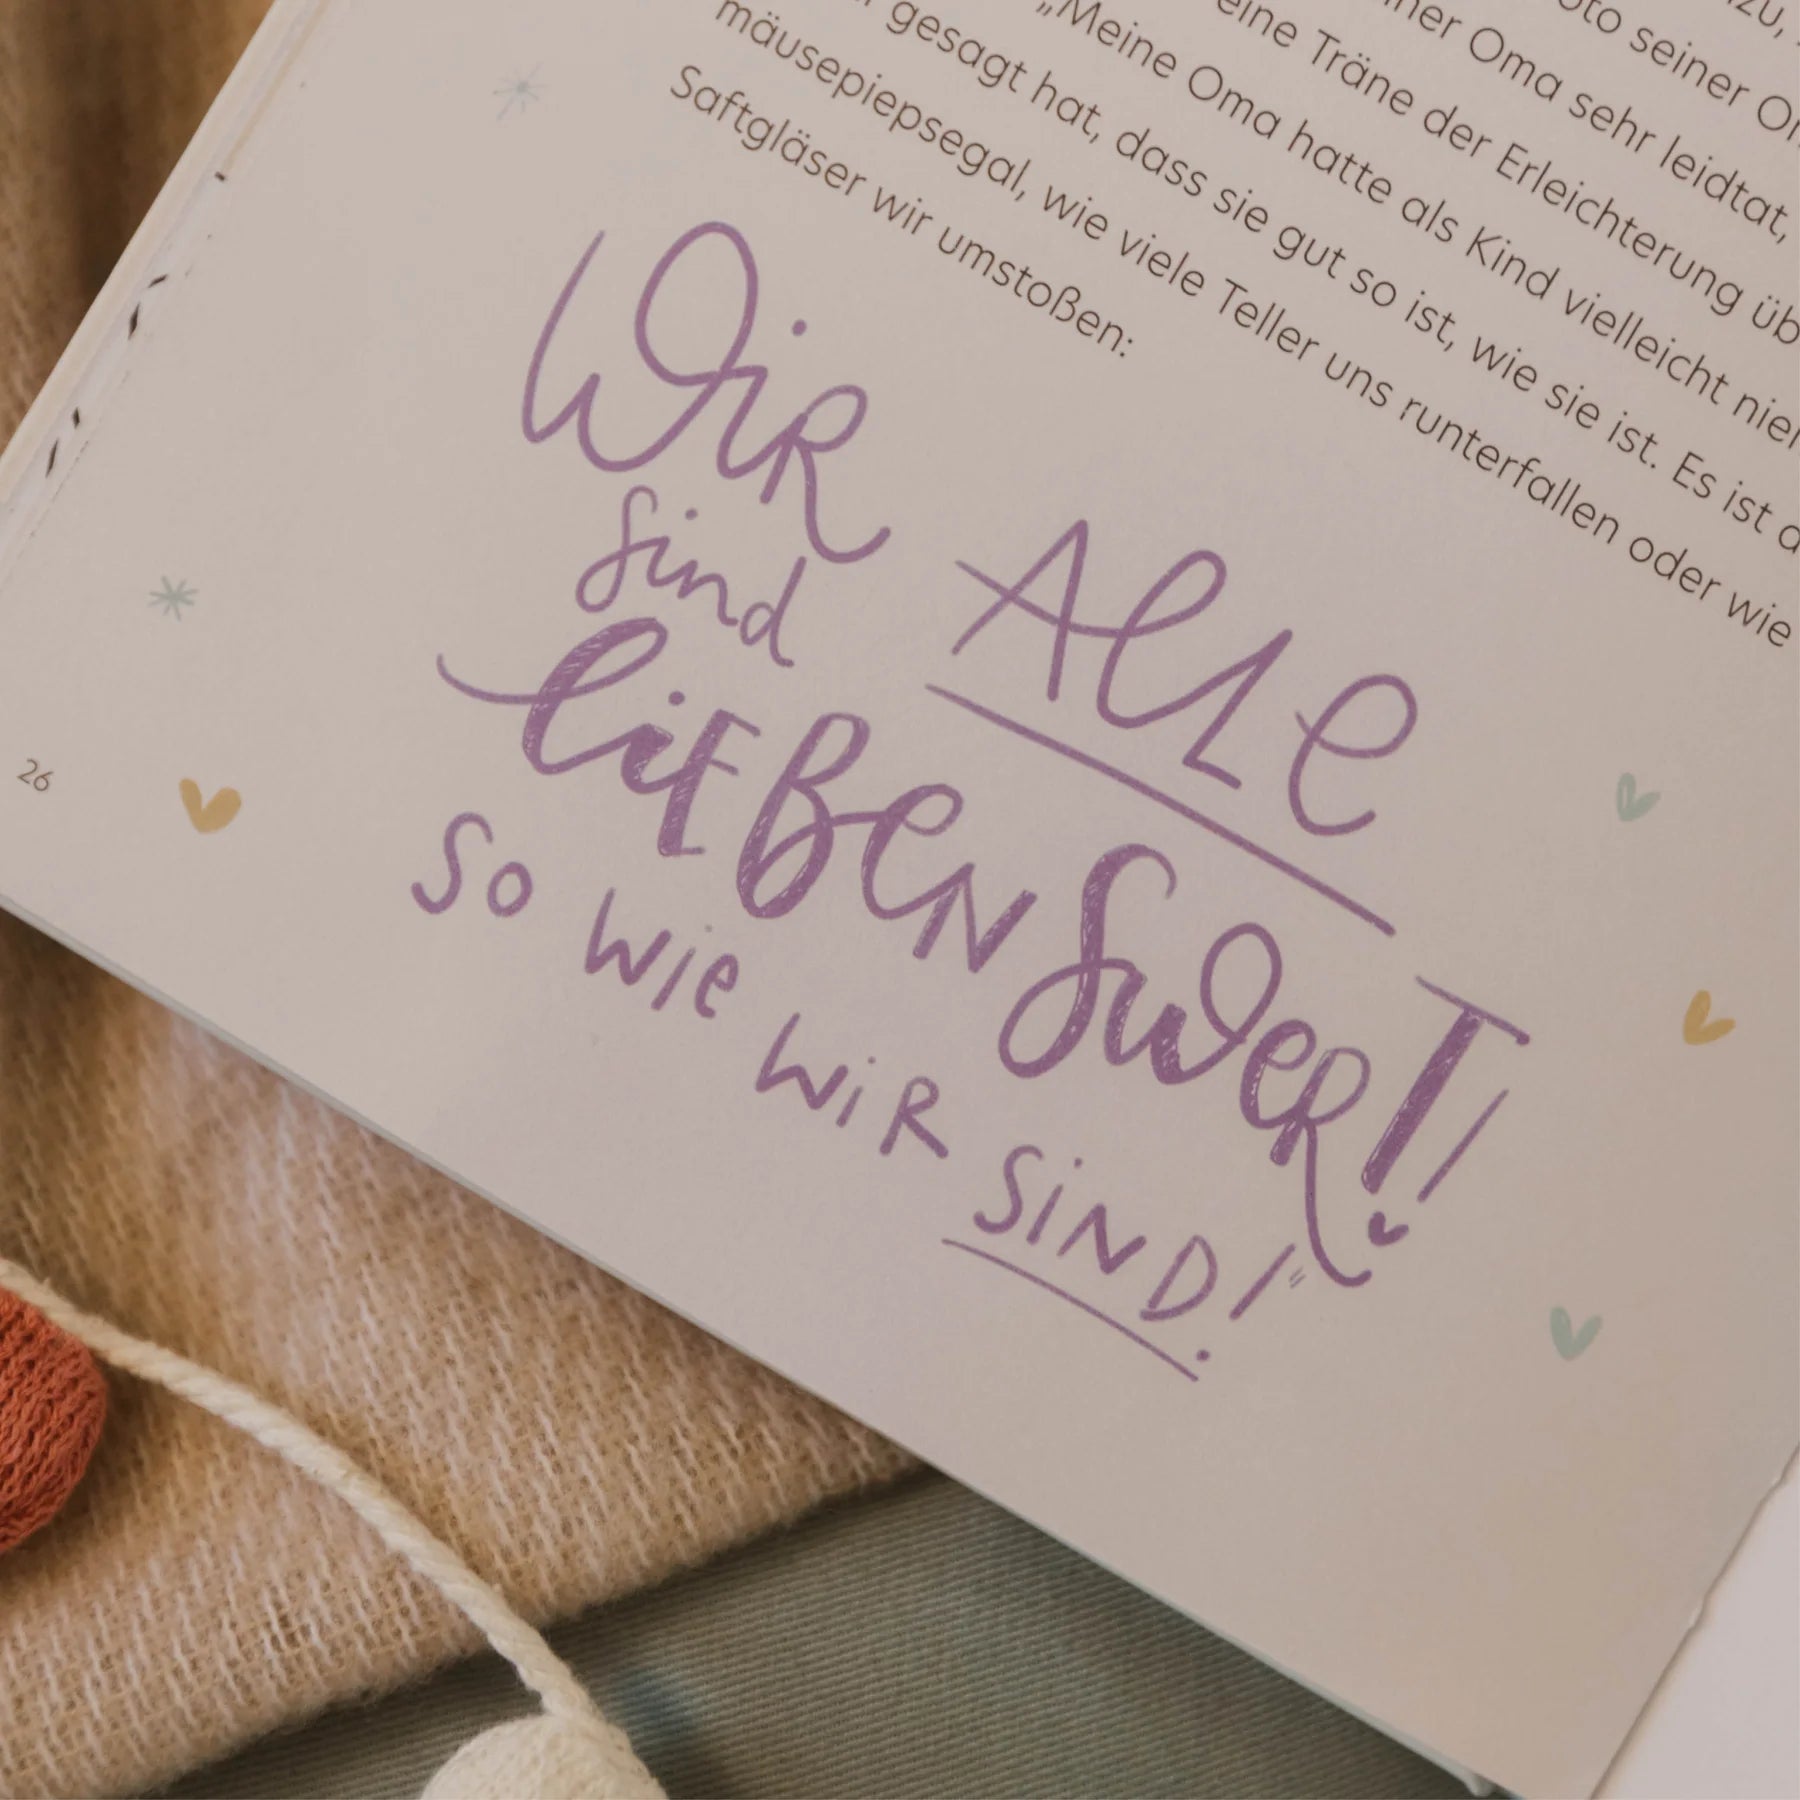 seiner
Oma sehr leidtat,
eine Träne der Erleichterung
„Meine Oma hatte als Kind vielleicht
gesagt hat, dass sie gut so ist, wie sie ist. Es ist
mäusepiepsegal, wie viele Teller uns runterfallen oder wie
Saftgläser wir umstoßen:
WiR
sind ALLe
lieBeNSweRT!
So wie wiR SiND!“
26